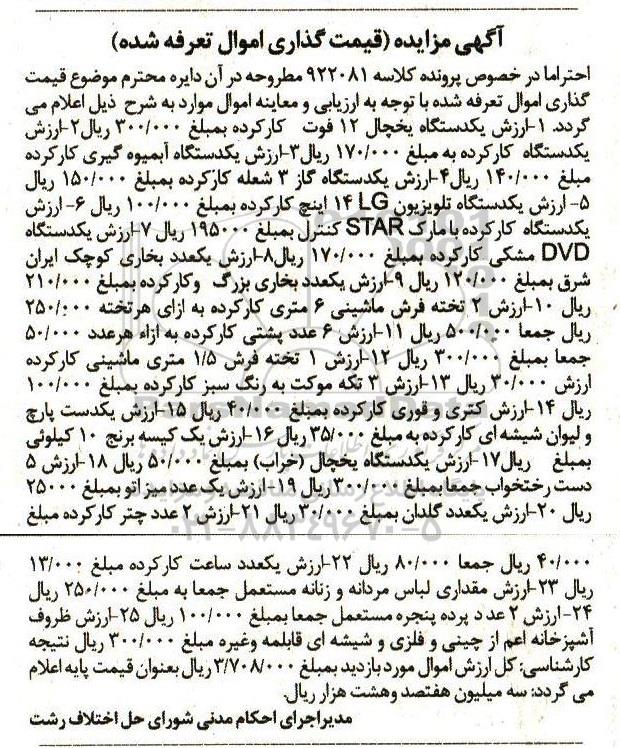 آگهی مزایده (قیمت گذاری اموال تعرفه شده)
احتراما در خصوص پرونده کلاسه ۹۲۲۰۸۱ مطروحه در آن دایره محترم موضوع قیمت
گذاری اموال تعرفه شده با توجه به ارزیابی و معاینه اموال موارد به شرح ذیل اعلام می
گردد. ۱-ارزش یکدستگاه یخچال ۱۲ فوت کارکرده بمبلغ ۳۰۰/۰۰۰ ریال۲-ارزش
یکدستگاه کارکرده به مبلغ ۱۷۰/۰۰۰ ریال۳-ارزش یکدستگاه آبمیوه گیری کارکرده
مبلغ ۱۴۰/۰۰۰ ریال۴-ارزش یکدستگاه گاز ۳ شعله کارکرده بمبلغ ۱۵۰/۰۰۰ ریال
۵- ارزش یکدستگاه تلویزیون LG ۱۴ اینچ کارکرده بمبلغ ۱۰۰/۰۰۰ ریال ۶- ارزش
یکدستگاه کارکرده با مارک STAR کنترل بمبلغ ۱۹۵۰۰۰ ریال ۷-ارزش یکدستگاه
DVD مشکی کارکرده بمبلغ ۱۷۰/۰۰۰ ریال۸-ارزش یکعدد بخاری کوچک ایران
شرق بمبلغ ۱۲۰/۰۰۰ ریال ۹-ارزش یکعدد بخاری بزرگ وکارکرده بمبلغ ۲۱۰/۰۰۰
ریال ۱۰-ارزش ۲ تخته فرش ماشینی ۶ متری کارکرده به ازای هرتخته ۲۵۰/۰۰۰
ریال جمعا ۵۰۰/۰۰۰ ریال ۱۱-ارزش ۶ عدد پشتی کارکرده به ازاء هرعدد ۵۰/۰۰۰
جمعا بمبلغ ۳۰۰/۰۰۰ ریال ۱۲-ارزش ۱ تخته فرش ۱/۵ متری ماشینی کارکرده
ارزش ۳۰/۰۰۰ ریال ۱۳-ارزش ۳ تکه موکت به رنگ سبز کارکرده بمبلغ ۱۰۰/۰۰۰
ریال ۱۴-ارزش کتری و قوری کارکرده بمبلغ ۴۰/۰۰۰ ریال ۱۵-ارزش یکدست پارچ
و لیوان شیشه ای کارکرده به مبلغ ۳۵/۰۰۰ ریال ۱۶-ارزش یک کیسه برنج ۱۰ کیلوئی
بمبلغ ریال۱۷-ارزش یکدستگاه یخچال (خراب) بمبلغ ۵۰/۰۰۰ ریال ۱۸-ارزش ۵
دست رختخواب جمعا بمبلغ ۳۰۰/۰۰۰ ریال ۱۹-ارزش یک عدد میز اتو بمبلغ ۲۵۰۰۰
ریال ۲۰-ارزش یکعدد گلدان بمبلغ ۳۰/۰۰۰ ریال ۲۱-ارزش ۲ عدد چتر کارکرده مبلغ
۴۰/۰۰۰ ریال جمعا ۸۰/۰۰۰ ریال ۲۲-ارزش یکعدد ساعت کارکرده مبلغ ۱۳/۰۰۰
ریال ۲۳-ارزش مقداری لباس مردانه و زنانه مستعمل جمعا به مبلغ ۲۵۰/۰۰۰ ریال
۲۴-ارزش ۲ عدد پرده پنجره مستعمل جمعا بمبلغ ۱۰۰/۰۰۰ ریال ۲۵-ارزش ظروف
آشپزخانه اعم از چینی و فلزی و شیشه ای قابلمه وغیره مبلغ ۳۰۰/۰۰۰ ریال نتیجه
کارشناسی: کل ارزش اموال مورد بازدید بمبلغ ۳/۷۰۸/۰۰۰ ریال بعنوان قیمت پایه اعلام
می گردد: سه میلیون هفتصد وهشت هزار ریال.
مدیراجرای احکام مدنی شورای حل اختلاف رشت
۰۲۱-۸۸۳۴۹۶۷۰-۵